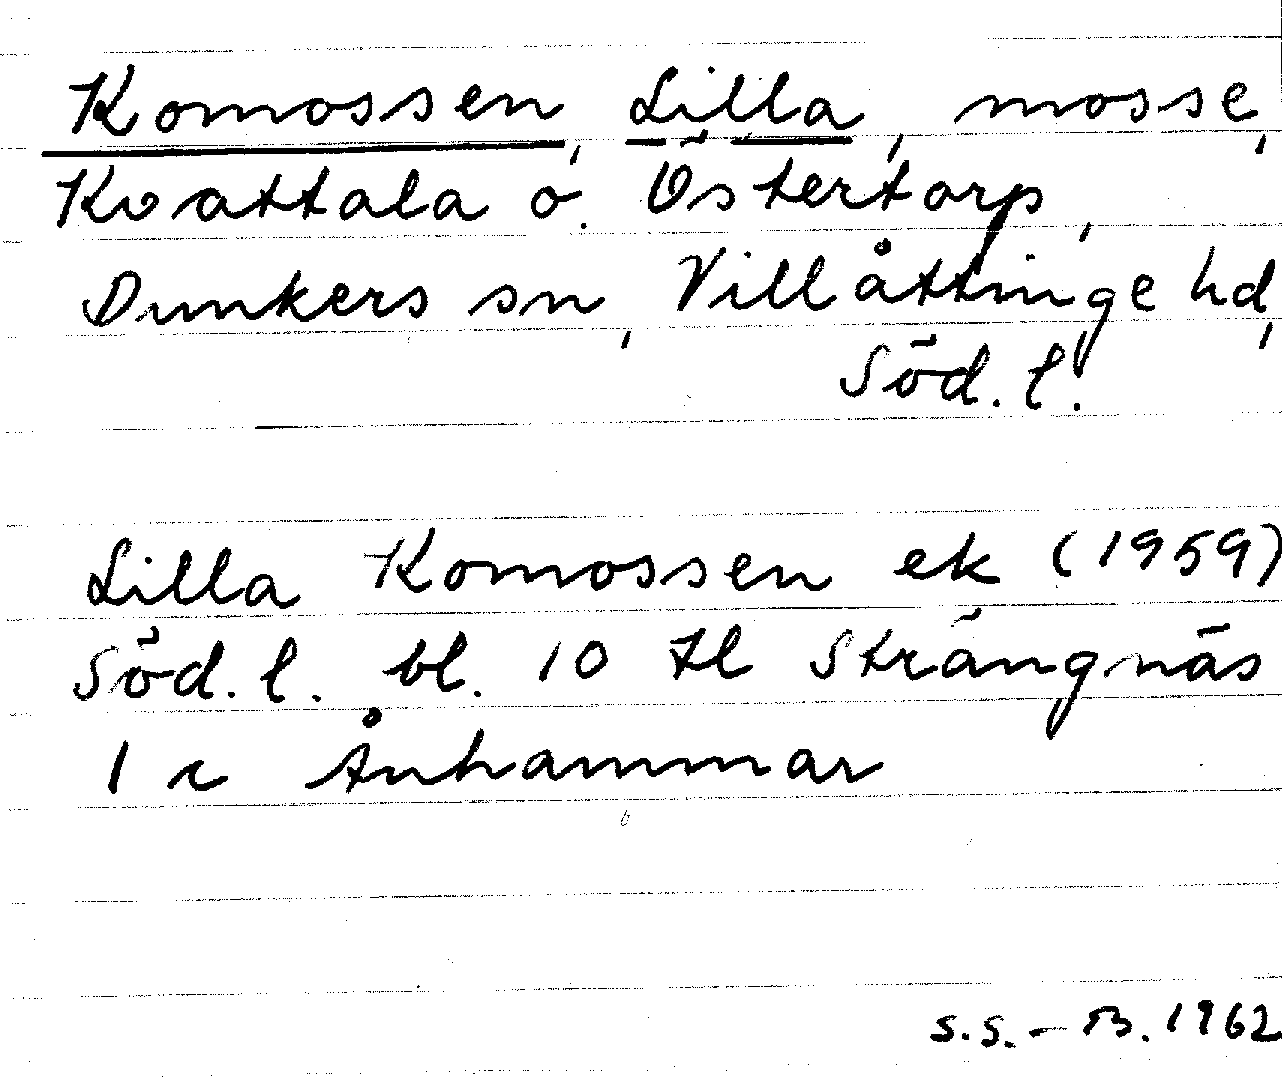 Komossen, Lilla, mosse,
Kvattala o. Östertorp,
Dunkers sn, Villåttinge hd,
Söd. l.
Lilla Komossen ek (1959)
Söd. l. bl. 10 till Strängnäs
1 c Ånhammar
S.S. – B. 1962